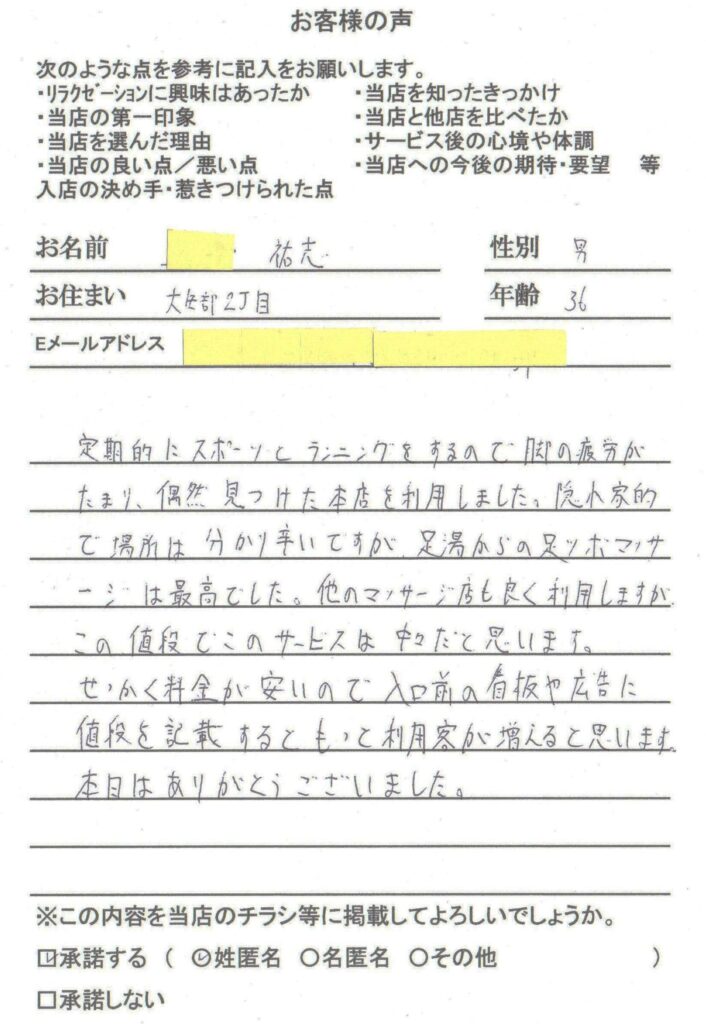 お客様の声
次のような点を参考に記入をお願いします。
・リラクゼーションに興味はあったか ・当店を知ったきっかけ
・当店の第一印象 ・当店と他店を比べたか
・当店を選んだ理由 ・サービス後の心境や体調
・当店の良い点／悪い点 ・当店への今後の期待・要望 等
入店の決め手・惹きつけられた点
お名前 祐志 性別 男
お住まい 2丁目 年齢 36
Eメールアドレス
定期的にスポーツとランニングをするので脚の疲労が
たまり、偶然見つけた本店を利用しました。隠れ家的
で場所は分かり辛いですが、足湯からの足ツボマッサ
ージは最高でした。他のマッサージ店も良く利用しますが
この値段でこのサービスは中々だと思います。
せっかく料金が安いので入口前の看板や広告に
値段を記載するともっと利用客が増えると思います。
本日はありがとうございました。
※この内容を当店のチラシ等に掲載してよろしいでしょうか。
☑承諾する ( 〇姓匿名 〇名匿名 〇その他 )
□承諾しない